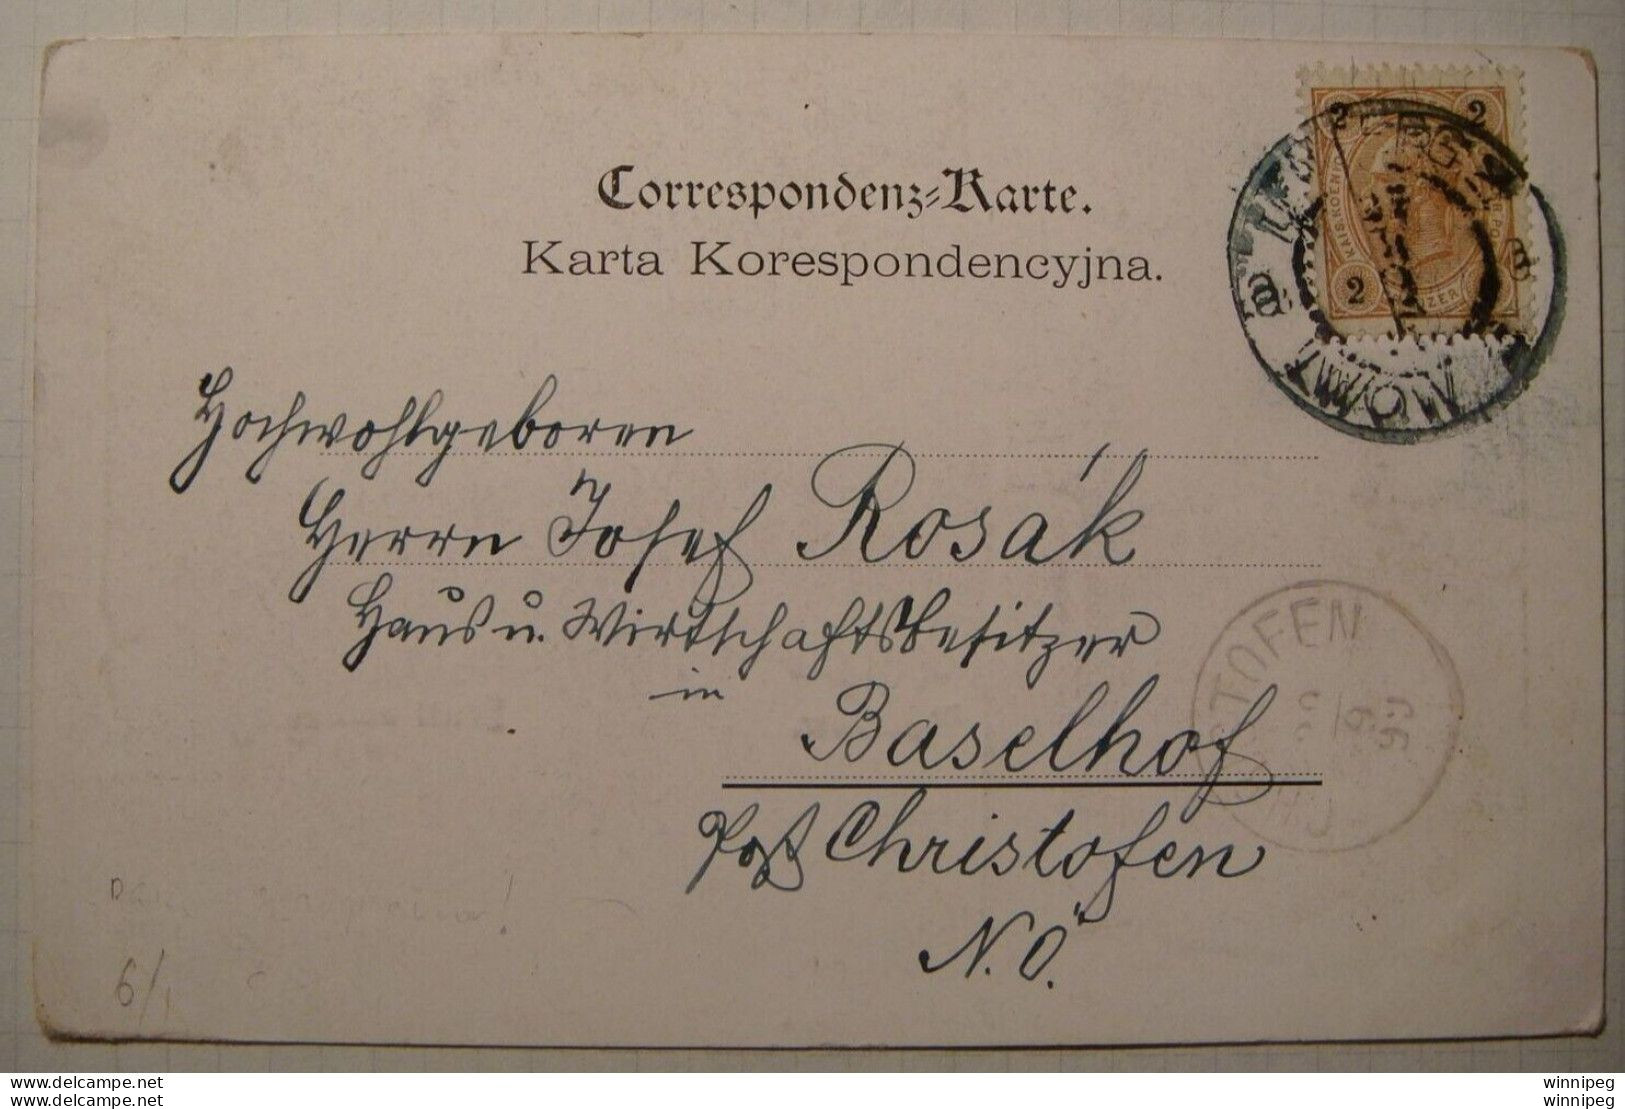 Correspondenz-Karte.
Karta Korespondencyjna.
2 2
2
Hochwohlgeboren
Herrn Josef Rosák
Haus u. Wirtschaftsbesitzer
in
Baselhof
Post Christofen
N.Ö.
TOFEN
99
6/1
www.delcampe.net
www.delcampe.net
winnipeg
winnipeg